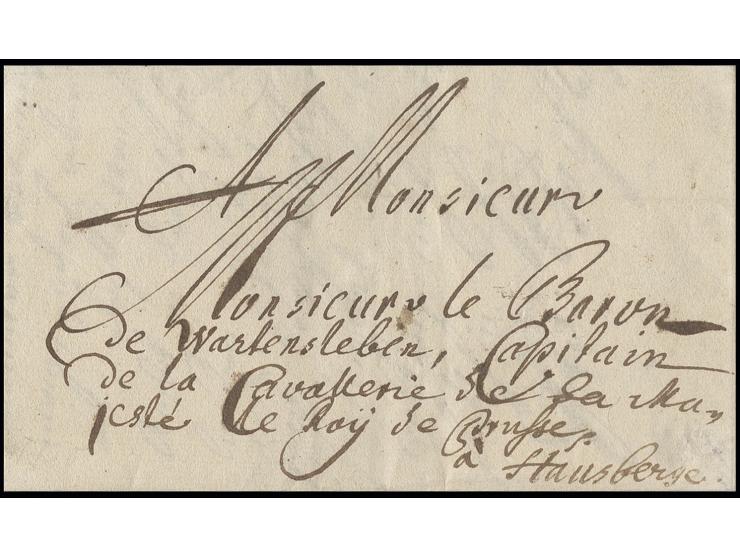 A Monsieur
Monsieur le Baron
de Wartensleben, Capitain
de la Cavallerie de Sa Ma,
jesté le Roÿ de Prusse,
à Hausberge.